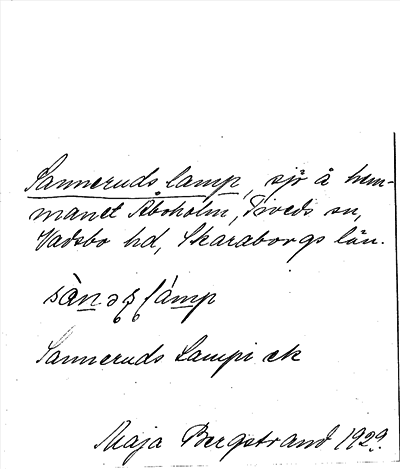 Sanneruds lamp, sjö å hem-
manet Åboholm, Tiveds sn,
Vadsbo hd, Skaraborgs län.
Sanneruds Lampi ek
Maja Bergstrand 1929.